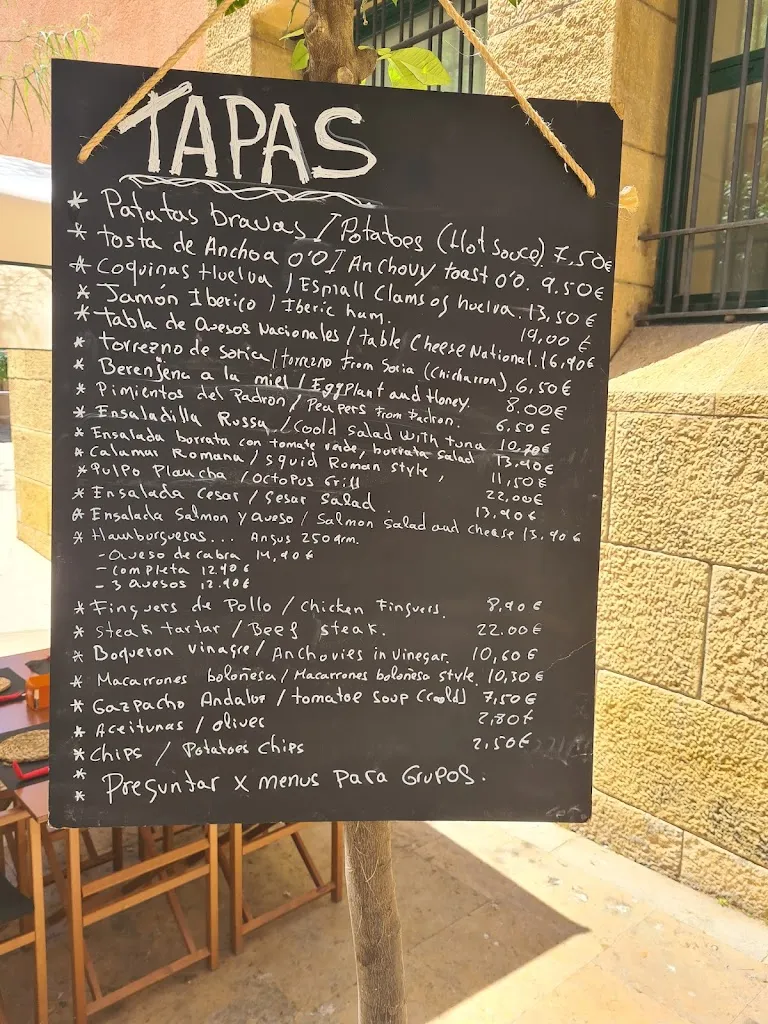 TAPAS
* Patatas bravas / Potatoes (Hot Souce). 7,50€
* tosta de Anchoa 0'0 / Anchovy toast 0'0. 9.50€
* Coquinas Huelva / Esmall Clams of huelva. 13,50€
* Jamón Iberico / Iberic ham. 19,00€
* tabla de Quesos Nacionales / table Cheese National. 16,90€
* torrezno de soria / torrezno From Soria (Chicharron). 6,50€
* Berenjena a la miel / EggPlant and Honey. 8,00€
* Pimientos del Padron / Peapers From Padron. 6.50€
* Ensaladilla Russa / Coold Salad with tuna 10.70€
* Ensalada burrata con tomate verde, burrata salad 13,90€
* Calamar Romana / squid Roman style, 11,50€
* Pulpo Plancha / octopus Grill 22,00€
* Ensalada Cesar / Sesar Salad. 13,90€
* Ensalada Salmon y Queso / Salmon Salad and cheese 13.90€
* Hamburguesas... Angus 250grm.
- Queso de cabra 14,90€
- Completa 12.90€
- 3 Quesos 12.90€
* Finguers de Pollo / Chicken Finguers. 8,90€
* Steak tartar / Beef steak. 22.00€
* Boqueron vinagre / Anchovies in Vinegar. 10,60€
* Macarrones boloñesa / Macarrones boloñesa style. 10,30€
* Gazpacho Andaluz / tomatoe soup (cold) 7,50€
* Aceitunas / olives 2,80€
* Chips / Potatoes Chips 2,50€
*
* Preguntar x menus para Grupos.